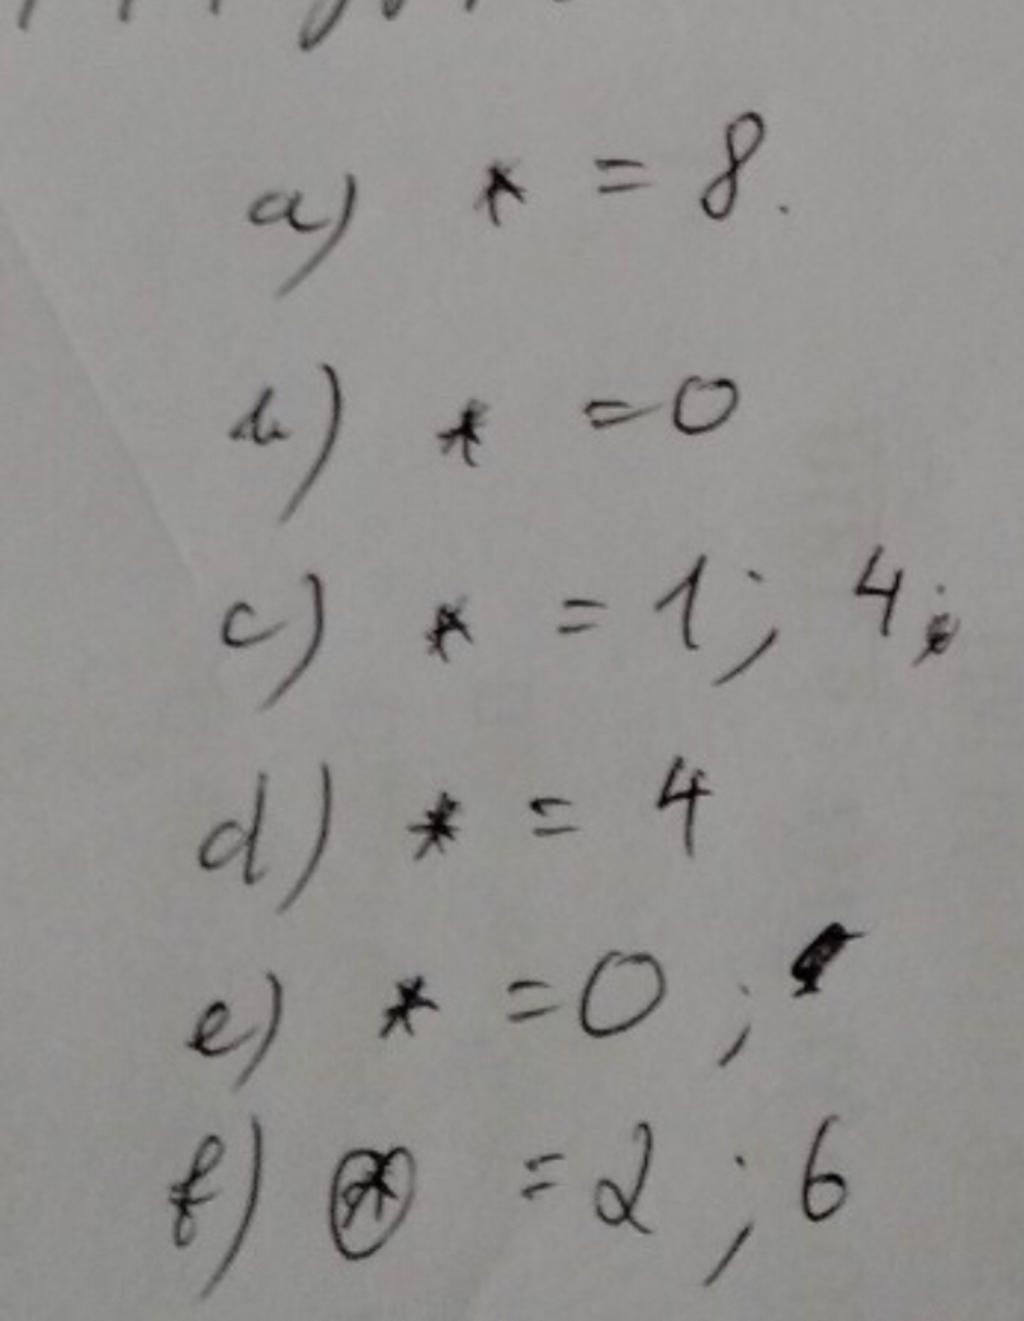 a) * = 8.
b) * = 0
c) * = 1; 4;
d) * = 4
e) * = 0 ;
f) * = 2 ; 6